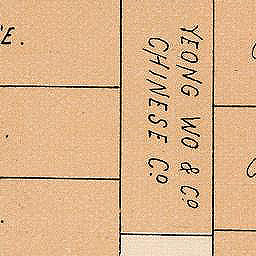 E.
YEONG WO & Co
CHINESE Co